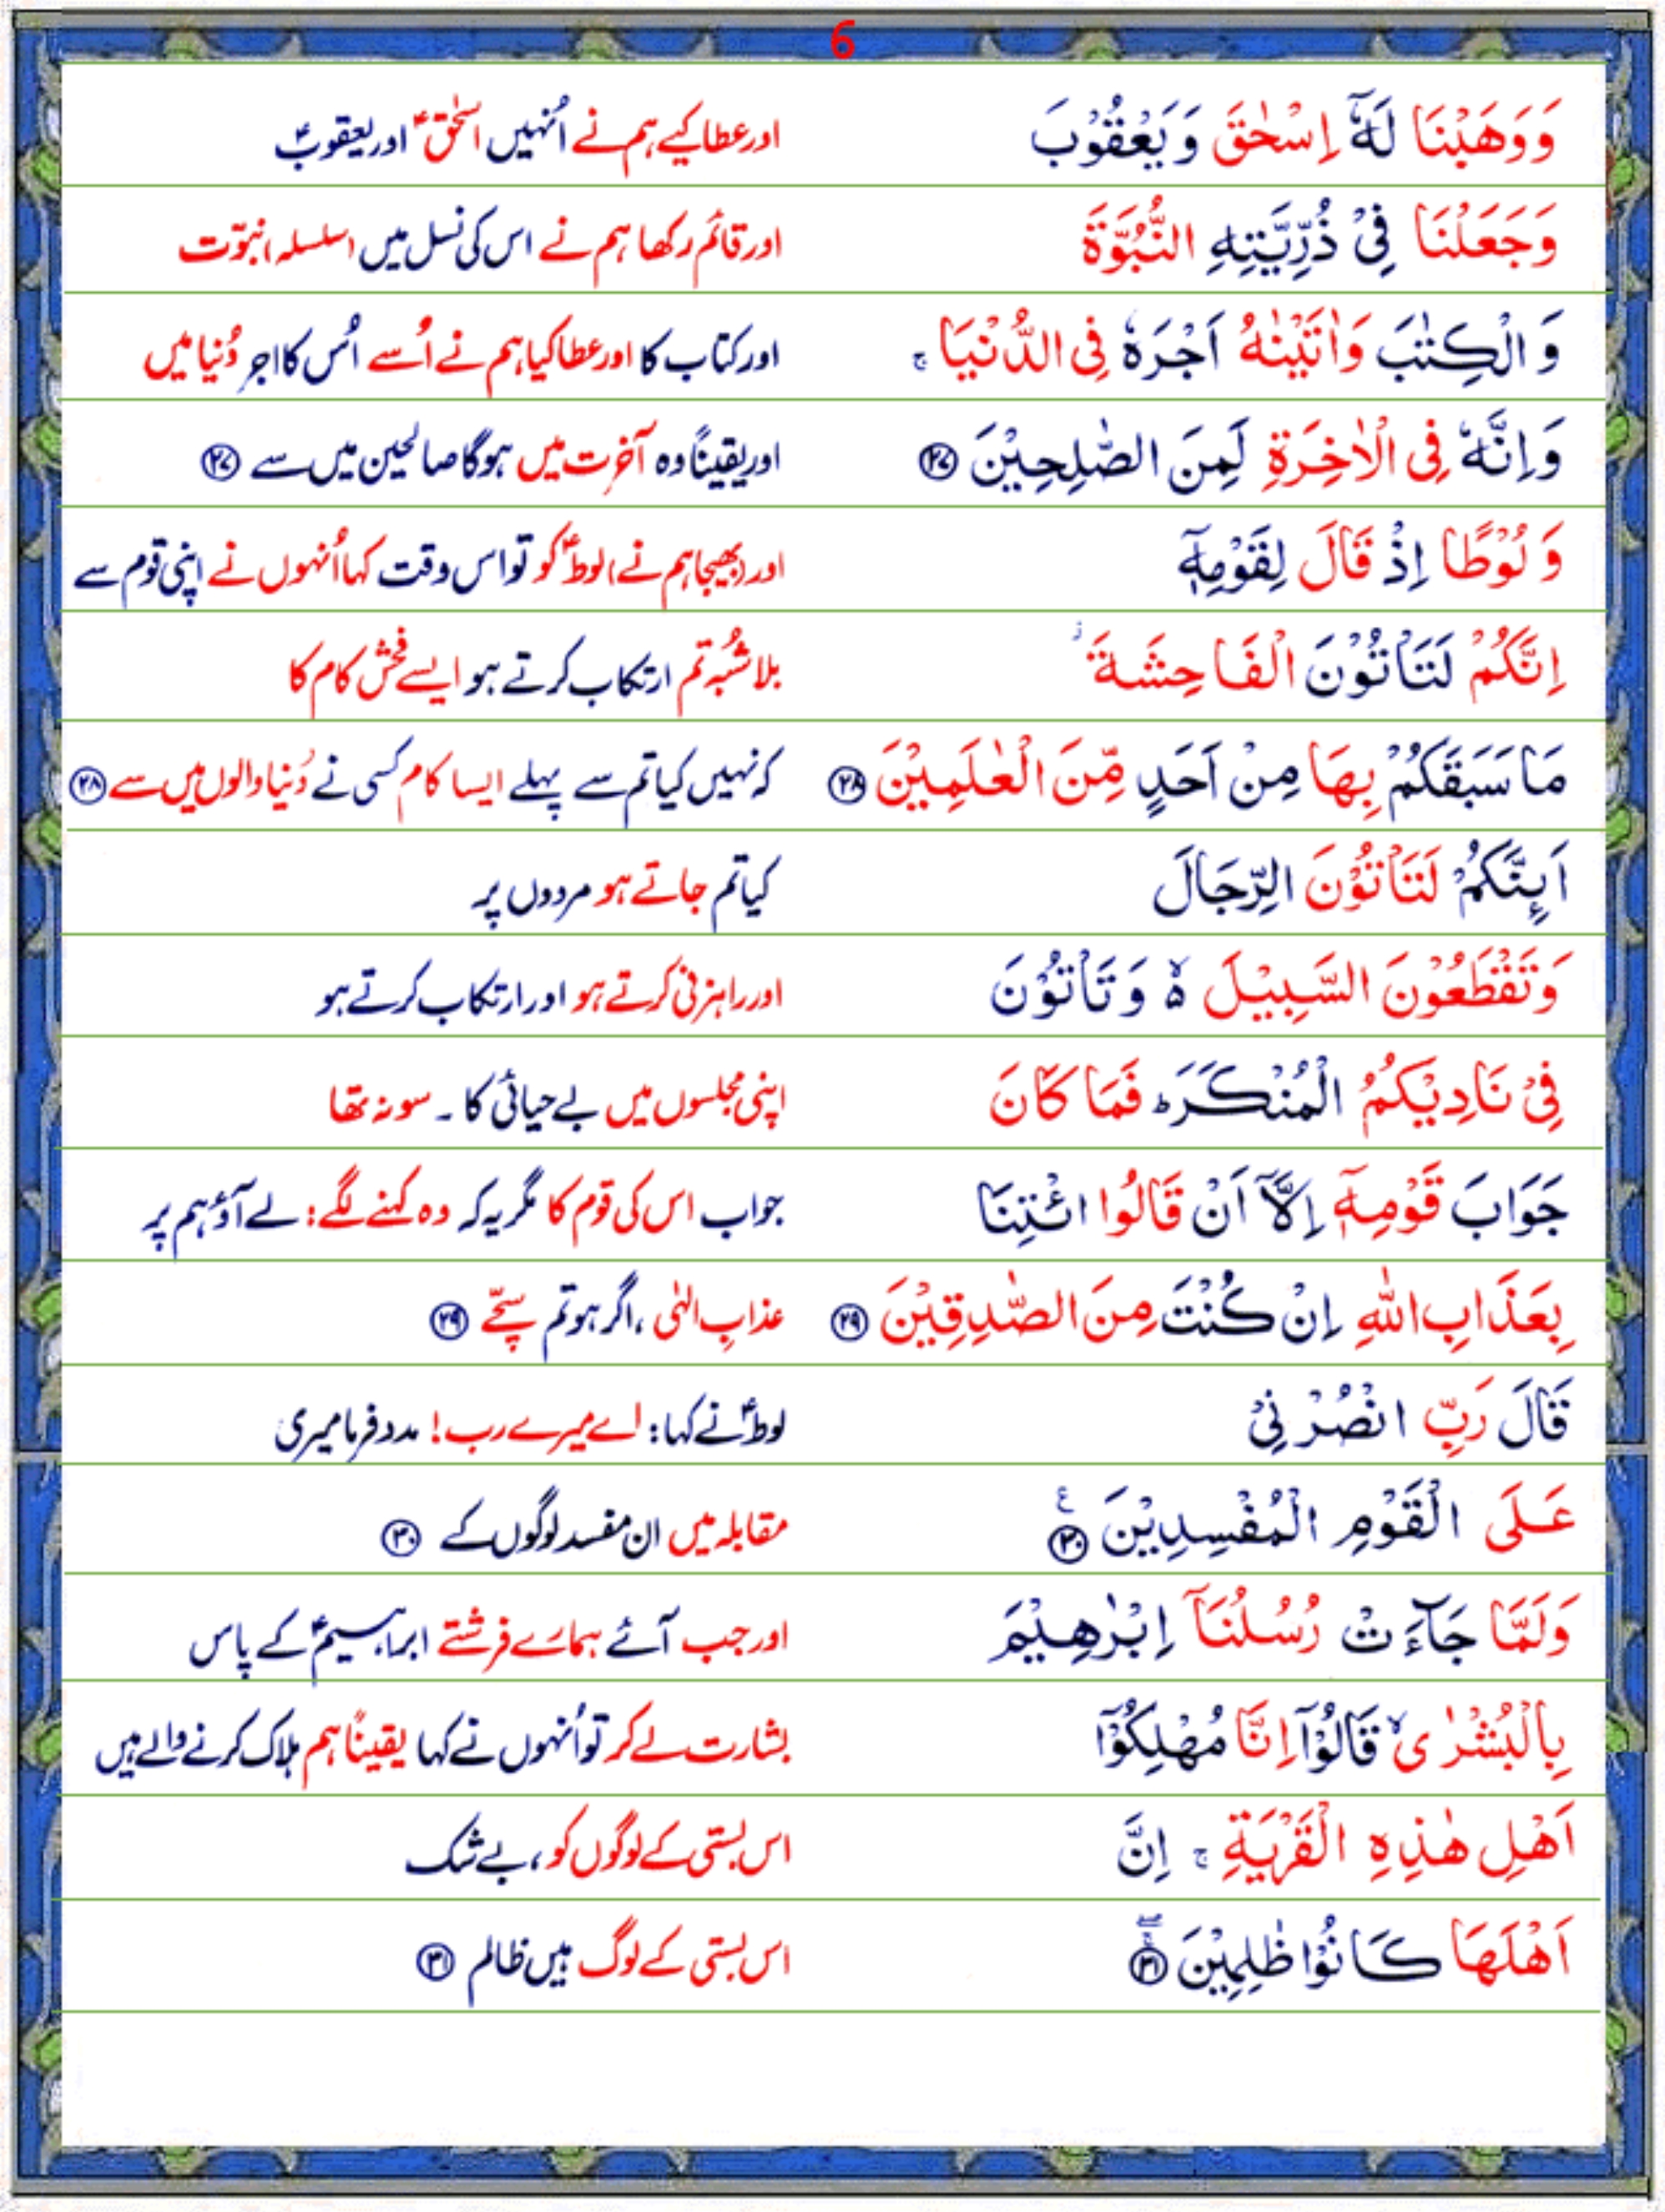 6
وَوَهَبْنَا لَهٗۤ اِسْحٰقَ وَيَعْقُوْبَ اور عطا کیے ہم نے اُنہیں اسحٰقؑ اور یعقوبؑ
وَجَعَلْنَا فِیْ ذُرِّيَّتِهِ النُّبُوَّةَ اور قائم رکھا ہم نے اس کی نسل میں (سلسلہ) نبوّت
وَ الْكِتٰبَ وَاٰتَيْنٰهُ اَجْرَهٗ فِی الدُّنْيَا ۚ اور کتاب کا اور عطا کیا ہم نے اُسے اُس کا اجر دُنیا میں
وَاِنَّهٗ فِی الْاٰخِرَةِ لَمِنَ الصّٰلِحِيْنَ ۲۷ اور یقیناً وہ آخرت میں ہو گا صالحین میں سے ۲۷
وَ لُوْطًا اِذْ قَالَ لِقَوْمِهٖۤ اور (بھیجا ہم نے) لوطؑ کو تو اس وقت کہا اُنہوں نے اپنی قوم سے
اِنَّكُمْ لَتَاْتُوْنَ الْفَاحِشَةَ ؗ بلا شُبہ تم ارتکاب کرتے ہو ایسے فحش کام کا
مَا سَبَقَكُمْ بِهَا مِنْ اَحَدٍ مِّنَ الْعٰلَمِيْنَ ۲۸ کہ نہیں کیا تم سے پہلے ایسا کام کسی نے دُنیا والوں میں سے ۲۸
اَىِٕنَّكُمْ لَتَاْتُوْنَ الرِّجَالَ کیا تم جاتے ہو مردوں پر
وَتَقْطَعُوْنَ السَّبِيْلَ ۙ۬ وَ تَاْتُوْنَ اور راہزنی کرتے ہو اور ارتکاب کرتے ہو
فِیْ نَادِيْكُمُ الْمُنْكَرَ ؕ فَمَا كَانَ اپنی مجلسوں میں بے حیائی کا ۔ سو نہ تھا
جَوَابَ قَوْمِهٖۤ اِلَّاۤ اَنْ قَالُوا ائْتِنَا جواب اس کی قوم کا مگر یہ کہ وہ کہنے لگے: لے آؤ ہم پر
بِعَذَابِ اللّٰهِ اِنْ كُنْتَ مِنَ الصّٰدِقِيْنَ ۲۹ عذابِ الٰہی ، اگر ہو تم سچّے ۲۹
قَالَ رَبِّ انْصُرْنِیْ لوطؑ نے کہا: اے میرے رب! مدد فرما میری
عَلَی الْقَوْمِ الْمُفْسِدِيْنَ ۳۰ ع مقابلہ میں ان مفسد لوگوں کے ۳۰
وَلَمَّا جَآءَتْ رُسُلُنَاۤ اِبْرٰهِيْمَ اور جب آئے ہمارے فرشتے ابراہیمؑ کے پاس
بِالْبُشْرٰی ۙ قَالُوْۤا اِنَّا مُهْلِكُوْۤا بشارت لے کر تو اُنہوں نے کہا یقیناً ہم ہلاک کرنے والے ہیں
اَهْلِ هٰذِهِ الْقَرْيَةِ ۚ اِنَّ اس بستی کے لوگوں کو ، بے شک
اَهْلَهَا كَانُوْا ظٰلِمِيْنَ ۳۱ اس بستی کے لوگ ہیں ظالم ۳۱